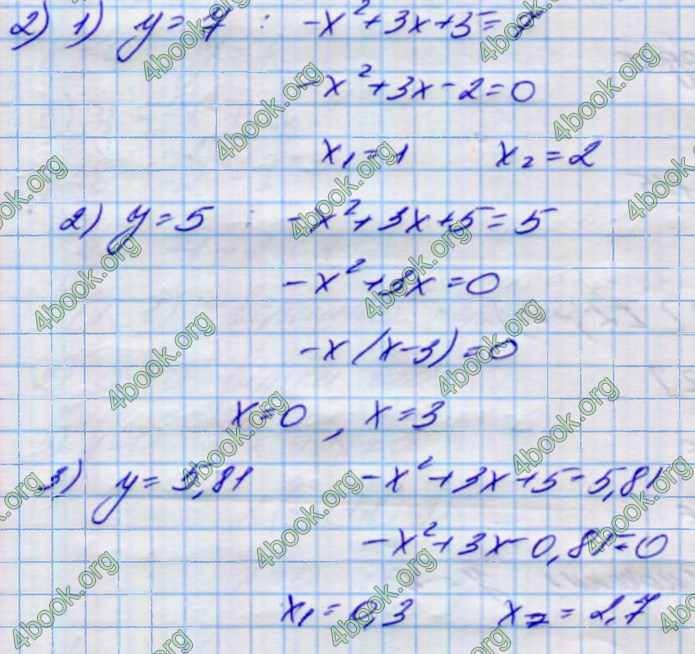 2) 1) y = 7 : -x² + 3x + 5 = 7
-x² + 3x - 2 = 0
x₁ = 1 x₂ = 2
2) y = 5 : -x² + 3x + 5 = 5
-x² + 3x = 0
-x (x - 3) = 0
x = 0 , x = 3
3) y = 5,81 -x² + 3x + 5 = 5,81
-x² + 3x - 0,81 = 0
x₁ = 0,3 x₂ = 2,7
4book.org